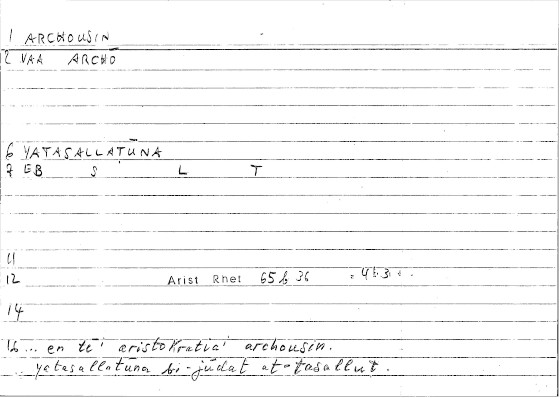 1 ARCHOUSIN
2 VAA ARCHŌ
6 YATASALLAṬŪNA
7 EB S L Ṭ
11
12 Arist Rhet 65 b 36
14
16 ... en tēi aristokratiai archousin.
yatasallaṭūna bi-jūdat at-tasalluṭ.